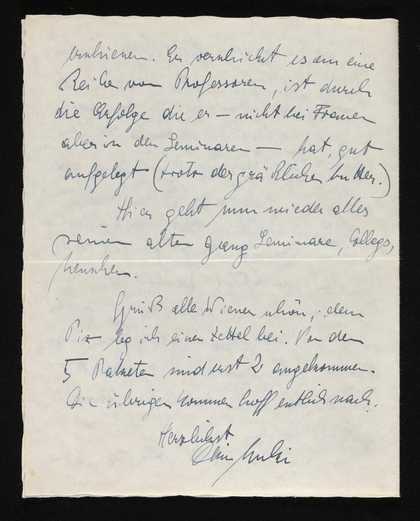 erschienen. Er verschickt es an eine
Reihe von Professoren, ist durch
die Erfolge die er — nicht bei Frauen
aber in den Seminaren — hat, gut
aufgelegt (trotz der gräßlichen
Hier geht nun wieder alles
seinen alten Gang, Seminare, Collegs,
Grüß alle Wiener schön, dem
leg ich einen Zettel bei. Von den
5 Paketen sind erst 2 angekommen.
Die übrigen kommen hoffentlich nach.
Herzlichst
Dein